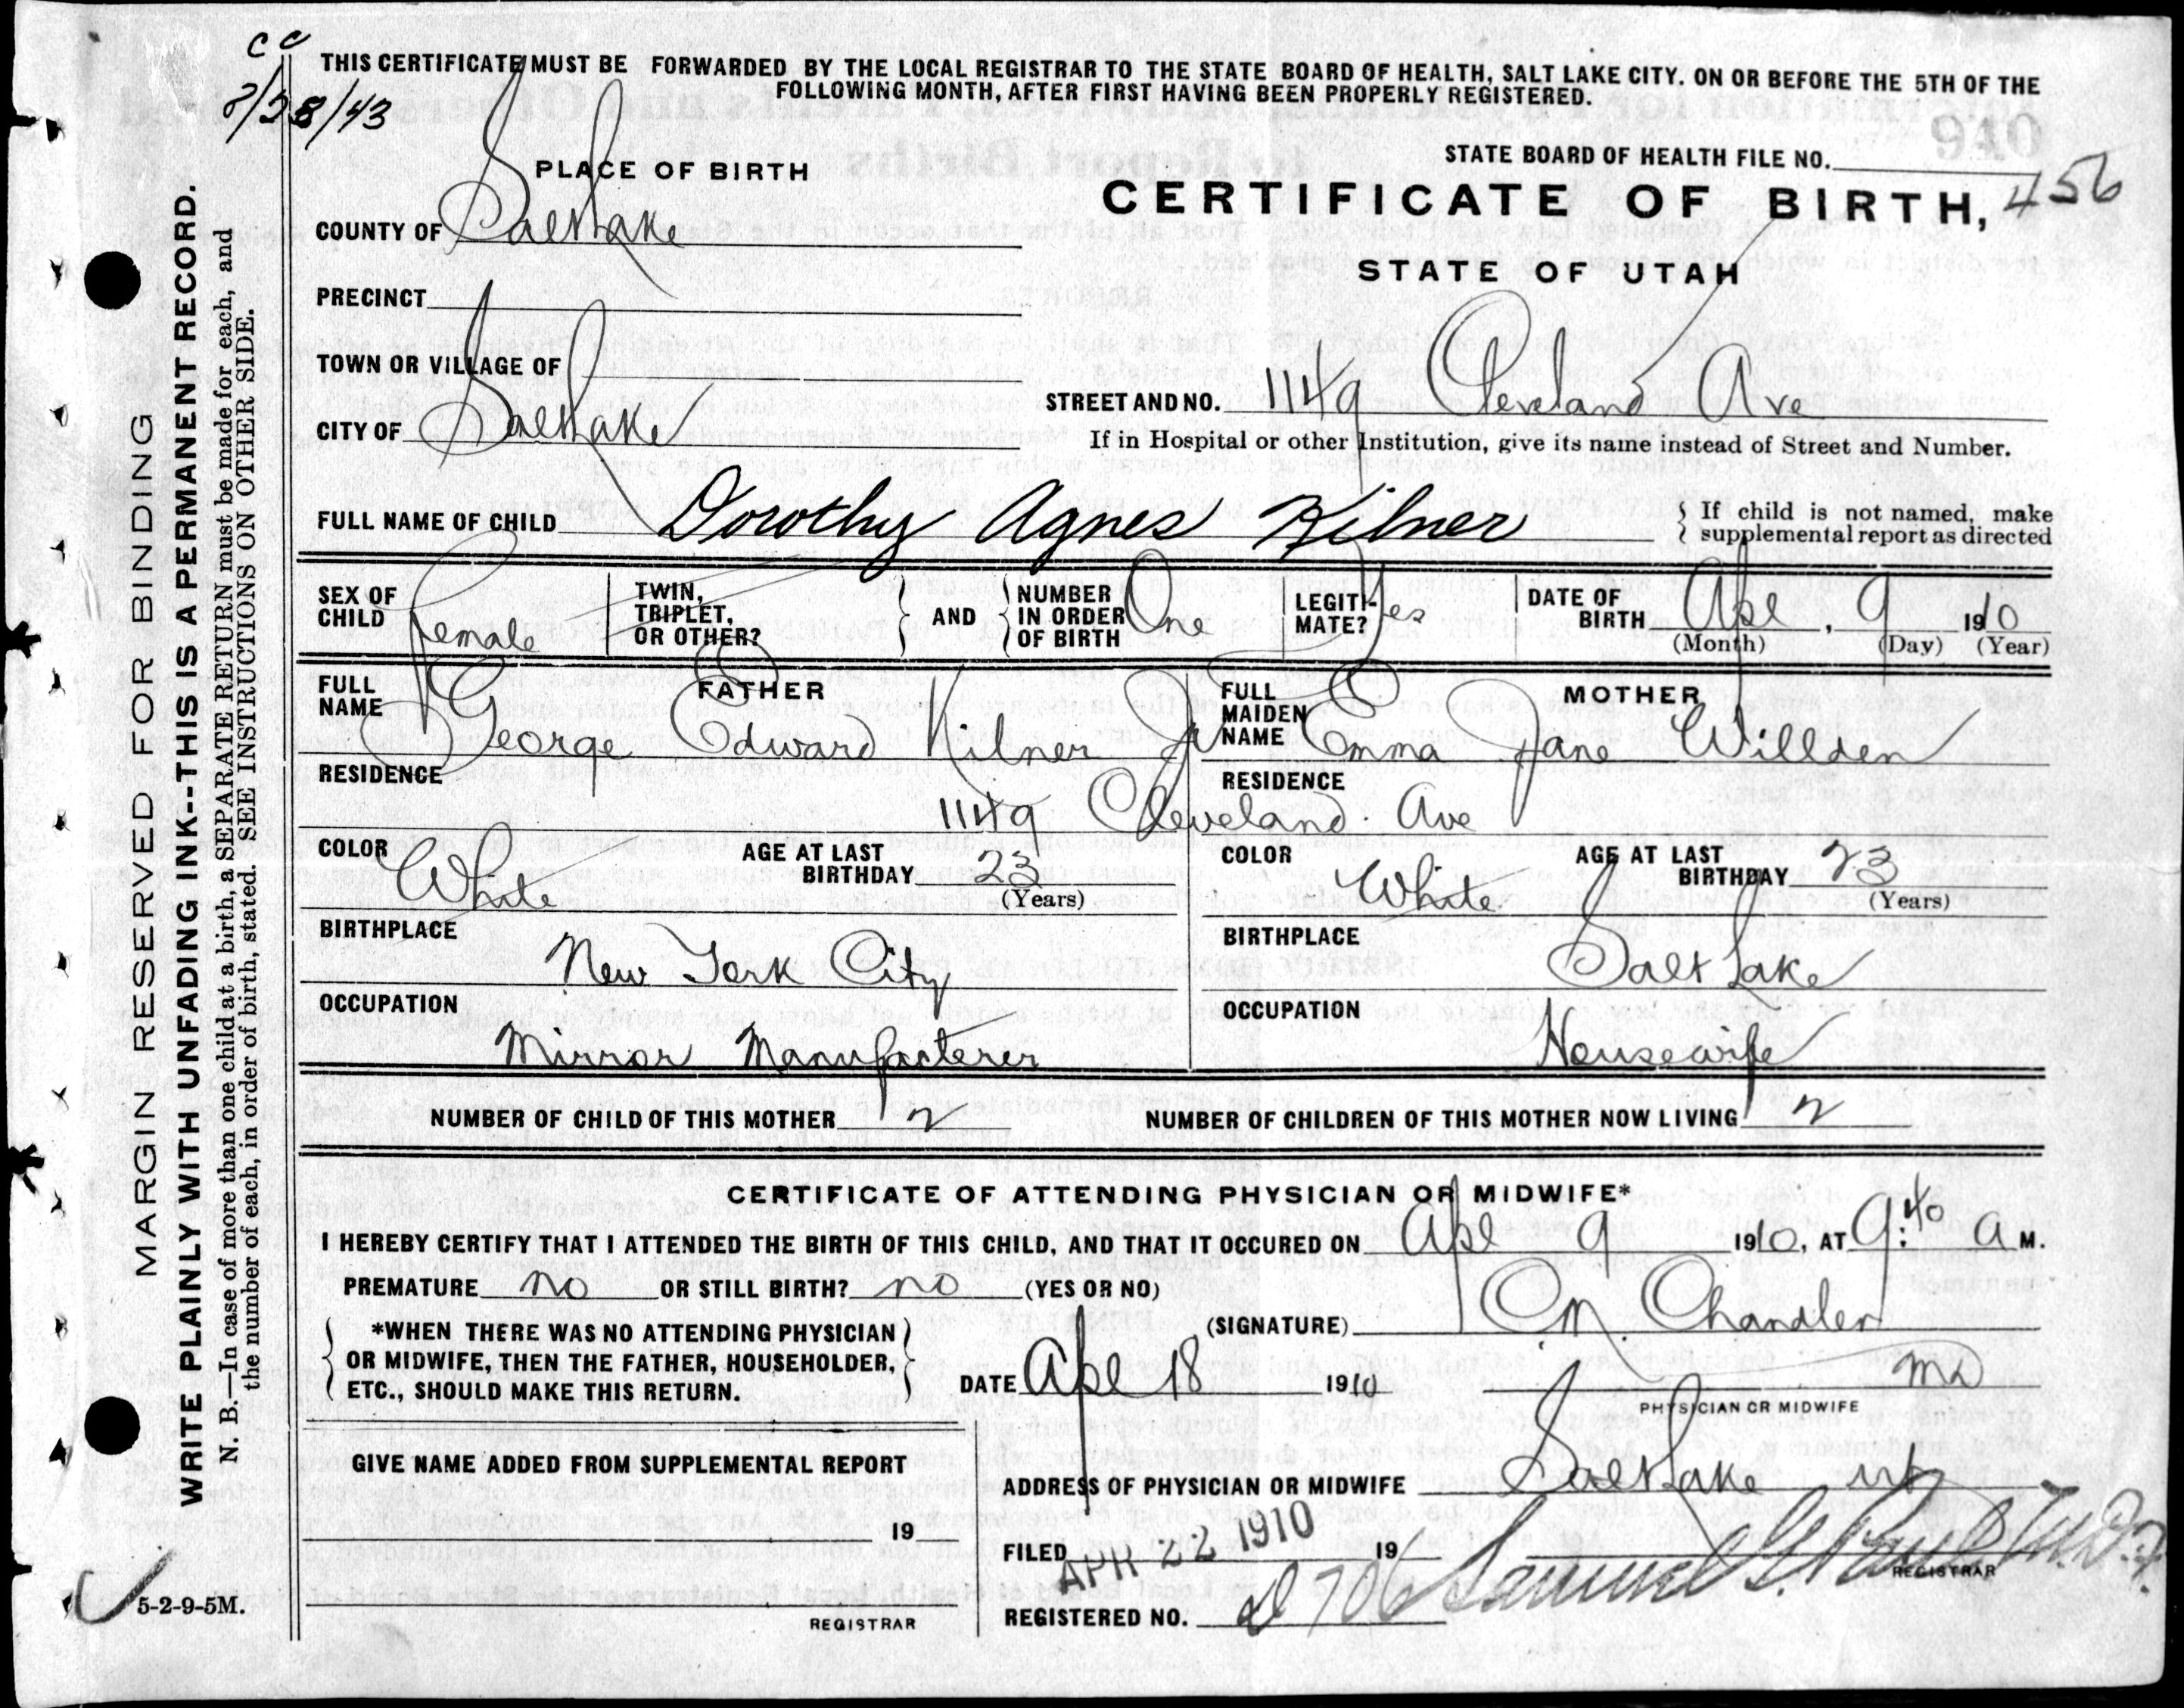 C C
THIS CERTIFICATE MUST BE FORWARDED BY THE LOCAL REGISTRAR TO THE STATE BOARD OF HEALTH, SALT LAKE CITY. ON OR BEFORE THE 5TH OF THE
FOLLOWING MONTH, AFTER FIRST HAVING BEEN PROPERLY REGISTERED.
/43
940
STATE BOARD OF HEALTH FILE NO.
456
PLACE OF BIRTH
CERTIFICATE OF BIRTH,
STATE OF UTAH
COUNTY OF Salt Lake
PRECINCT
TOWN OR VILLAGE OF
CITY OF Salt Lake
STREET AND NO. 1149 Cleveland Ave
If in Hospital or other Institution, give its name instead of Street and Number.
FULL NAME OF CHILD Dorothy Agnes Kilner
If child is not named, make
supplemental report as directed
SEX OF CHILD Female
TWIN, TRIPLET, OR OTHER?
AND
NUMBER IN ORDER OF BIRTH One
LEGITI-MATE? Yes
DATE OF BIRTH Apl , 9 1910
(Month) (Day) (Year)
FATHER
FULL NAME George Edward Kilner Jr
MOTHER
FULL MAIDEN NAME Emma Jane Willden
RESIDENCE
RESIDENCE
1149 Cleveland. Ave
COLOR White AGE AT LAST BIRTHDAY 23 (Years)
COLOR White AGE AT LAST BIRTHDAY 23 (Years)
BIRTHPLACE New York City
BIRTHPLACE Salt Lake
OCCUPATION Mirror Manufacterer
OCCUPATION Housewife
NUMBER OF CHILD OF THIS MOTHER 2 NUMBER OF CHILDREN OF THIS MOTHER NOW LIVING 2
CERTIFICATE OF ATTENDING PHYSICIAN OR MIDWIFE*
I HEREBY CERTIFY THAT I ATTENDED THE BIRTH OF THIS CHILD, AND THAT IT OCCURED ON Apl 9 1910, AT 9:40 A M.
PREMATURE no OR STILL BIRTH? no (YES OR NO)
*WHEN THERE WAS NO ATTENDING PHYSICIAN
OR MIDWIFE, THEN THE FATHER, HOUSEHOLDER,
ETC., SHOULD MAKE THIS RETURN.
(SIGNATURE) Chandler
DATE Apl 18 1910
MD
PHYSICIAN OR MIDWIFE
GIVE NAME ADDED FROM SUPPLEMENTAL REPORT
19
REGISTRAR
ADDRESS OF PHYSICIAN OR MIDWIFE Salt Lake
FILED APR 22 1910 19
REGISTRAR
REGISTERED NO. D706
Samuel G. Paul M.D.
MARGIN RESERVED FOR BINDING
WRITE PLAINLY WITH UNFADING INK--THIS IS A PERMANENT RECORD.
N. B.—In case of more than one child at a birth, a SEPARATE RETURN must be made for each, and
the number of each, in order of birth, stated. SEE INSTRUCTIONS ON OTHER SIDE.
5-2-9-5M.